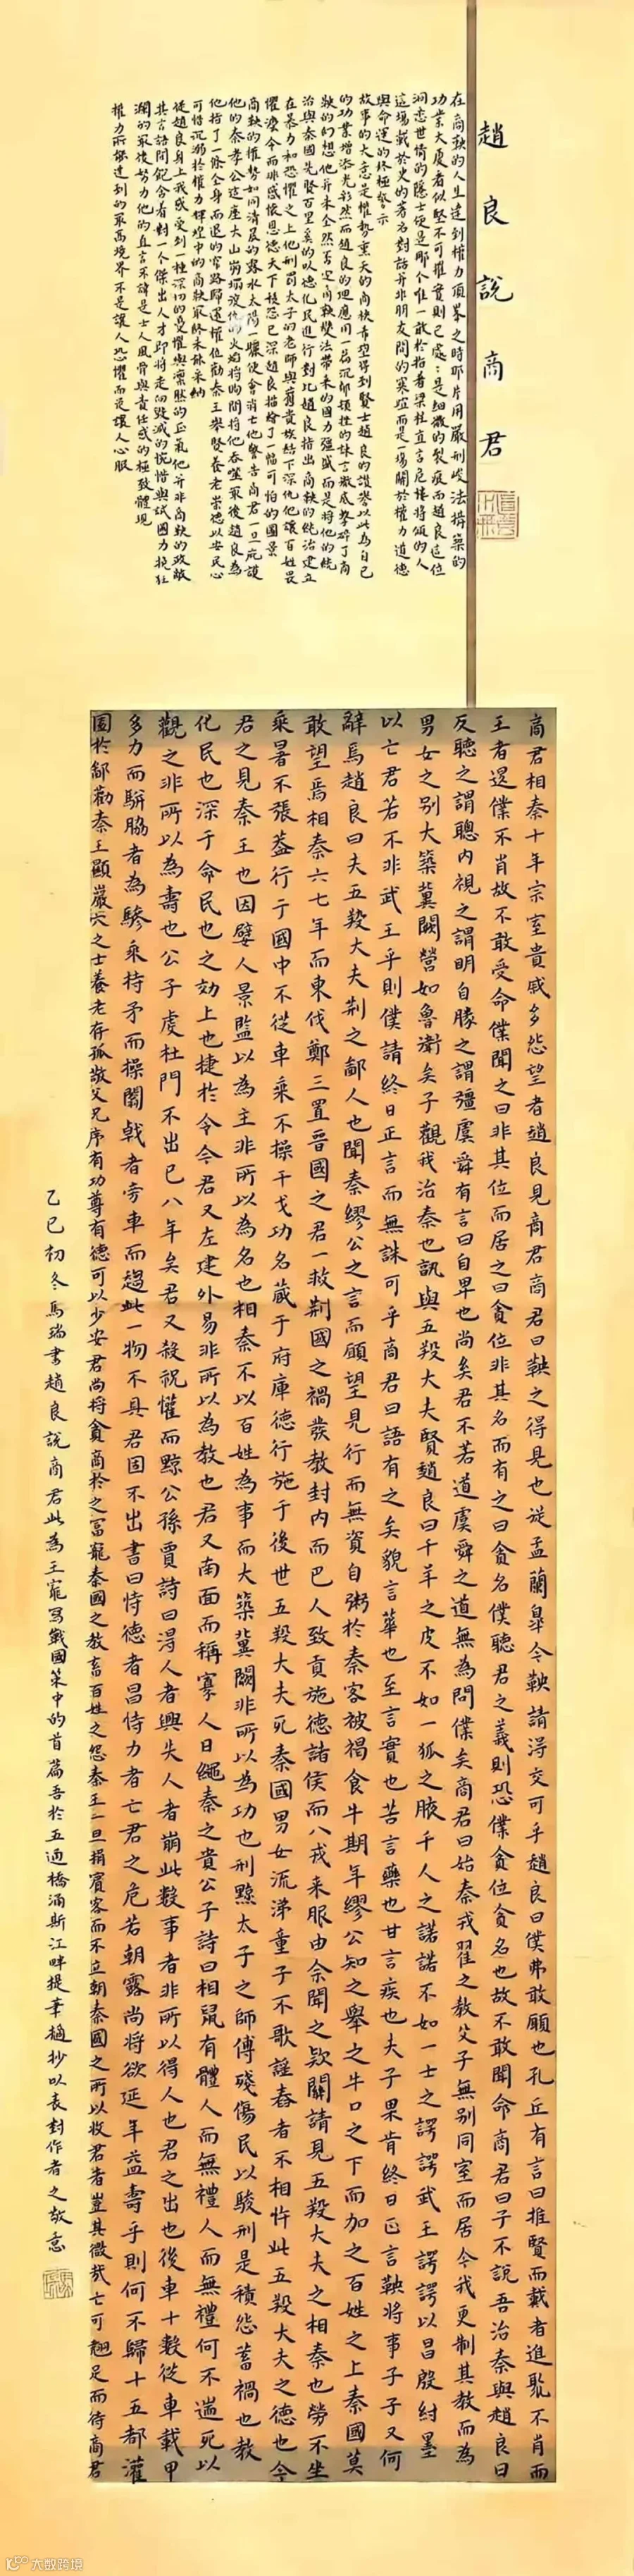 趙良說商君
在商鞅的人生達到權力頂峯之時那片用嚴刑峻法構築的
功業大廈看似堅不可摧實則已處：是細微的裂痕而趙良這位
洞悉世情的隱士便是那个唯一敢於指着梁柱直言危樓將傾的人
這場載於史的著名對話并非朋友間的寒暄而是一場關於權力道德
與命運的終極警示
故事的大意是權勢熏天的商鞅希望得到賢士趙良的讚譽以此為自己
的功業增添光彩然而趙良的坦應用一篇沉郁頓挫的諫言徹底擊碎了商
鞅的幻想他并未全然否定商鞅變法帶來的國力强盛而是將他的統
治與秦國先賢百里奚的以德化民進行對比趙良指出商鞅的統治建立
在暴力和恐懼之上他刑罰太子的老師與舊貴族結下深仇他讓百姓畏
懼法令而非感懷恩德天下積怨已深趙良描繪了一幅可怕的圖景
商鞅的權勢如同清晨的露水太陽一曬便會消亡他警告商君一旦庇護
他的秦孝公這座大山崩塌復仇的火焰將瞬間將他吞噬最後趙良為
他指了一條全身而退的窄路歸還權位勸秦王舉賢養老崇德以安民心
可惜沉溺於權力輝煌中的商鞅最終未能采納
從趙良身上我感受到一種深切的憂懼與凛然的正氣他并非商鞅的政敵
其言語間飽含着對一个傑出人才即將走向毀滅的惋惜與試圖力挽狂
瀾的最後努力他的直言不諱是士人風骨與責任感的極致體現
權力所能達到的最高境界不是讓人恐懼而是讓人心服
商君相秦十年宗室貴戚多怨望者趙良見商君商君曰鞅之得見也從孟蘭皋今鞅請得交可乎趙良曰僕弗敢願也孔丘有言曰推賢而戴者進聚不肖而
王者退僕不肖故不敢受命僕聞之曰非其位而居之曰貪位非其名而有之曰貪名僕聽君之義則恐僕貪位貪名也故不敢聞命商君曰子不說吾治秦與趙良曰
反聽之謂聰內視之謂明自勝之謂彊虞舜有言曰自卑也尚矣君不若道虞舜之道無為問僕矣商君曰始秦戎翟之教父子無別同室而居今我更制其教而為
男女之別大築冀闕營如魯衛矣子觀我治秦也孰與五羖大夫賢趙良曰千羊之皮不如一狐之腋千人之諾諾不如一士之諤諤武王諤諤以昌殷紂墨
以亡君若不非武王乎則僕請終日正言而無誅可乎商君曰語有之矣貌言華也至言實也苦言藥也甘言疾也夫子果肯終日正言鞅將事子子又何
辭焉趙良曰夫五羖大夫荆之鄙人也聞秦繆公之言而願望見行而無資自粥於秦客被褐食牛期年繆公知之舉之牛口之下而加之百姓之上秦國莫
敢望焉相秦六七年而東伐鄭三置晉國之君一救荆國之禍發教封內而巴人致貢施德諸侯而八戎來服由余聞之欵關請見五羖大夫之相秦也勞不坐
乘暑不張蓋行于國中不從車乘不操干戈功名藏于府庫德行施于後世五羖大夫死秦國男女流涕童子不歌謠舂者不相忤此五羖大夫之德也今
君之見秦王也因嬖人景監以為主非所以為名也相秦不以百姓為事而大築冀闕非所以為功也刑黥太子之師傅殘傷民以駿刑是積怨蓄禍也教
化民也深于命民也之効上也捷於令今君又左建外易非所以為教也君又南面而稱寡人日繩秦之貴公子詩曰相鼠有體人而無禮人而無禮何不遄死以
觀之非所以為壽也公子虔杜門不出已八年矣君又殺祝懽而黥公孫賈詩曰得人者興失人者崩此數事者非所以得人也君之出也後車十數從車載甲
多力而駢脇者為驂乘持矛而操闟戟者旁車而趨此一物不具君固不出書曰恃德者昌恃力者亡君之危若朝露尚將欲延年益壽乎則何不歸十五都灌
園於鄙勸秦王顯巖穴之士養老存孤敬父兄序有功尊有德可以少安君尚將貪商於之富寵秦國之教畜百姓之怨秦王一旦捐賓客而不立朝秦國之所以收君者豈其微哉亡可翹足而待商君
乙巳初冬馬瑞書趙良說商君此為王寵寫戰國策中的首篇吾於五通橋涌斯江畔提筆摘抄以表對作者之敬意
大数跨境